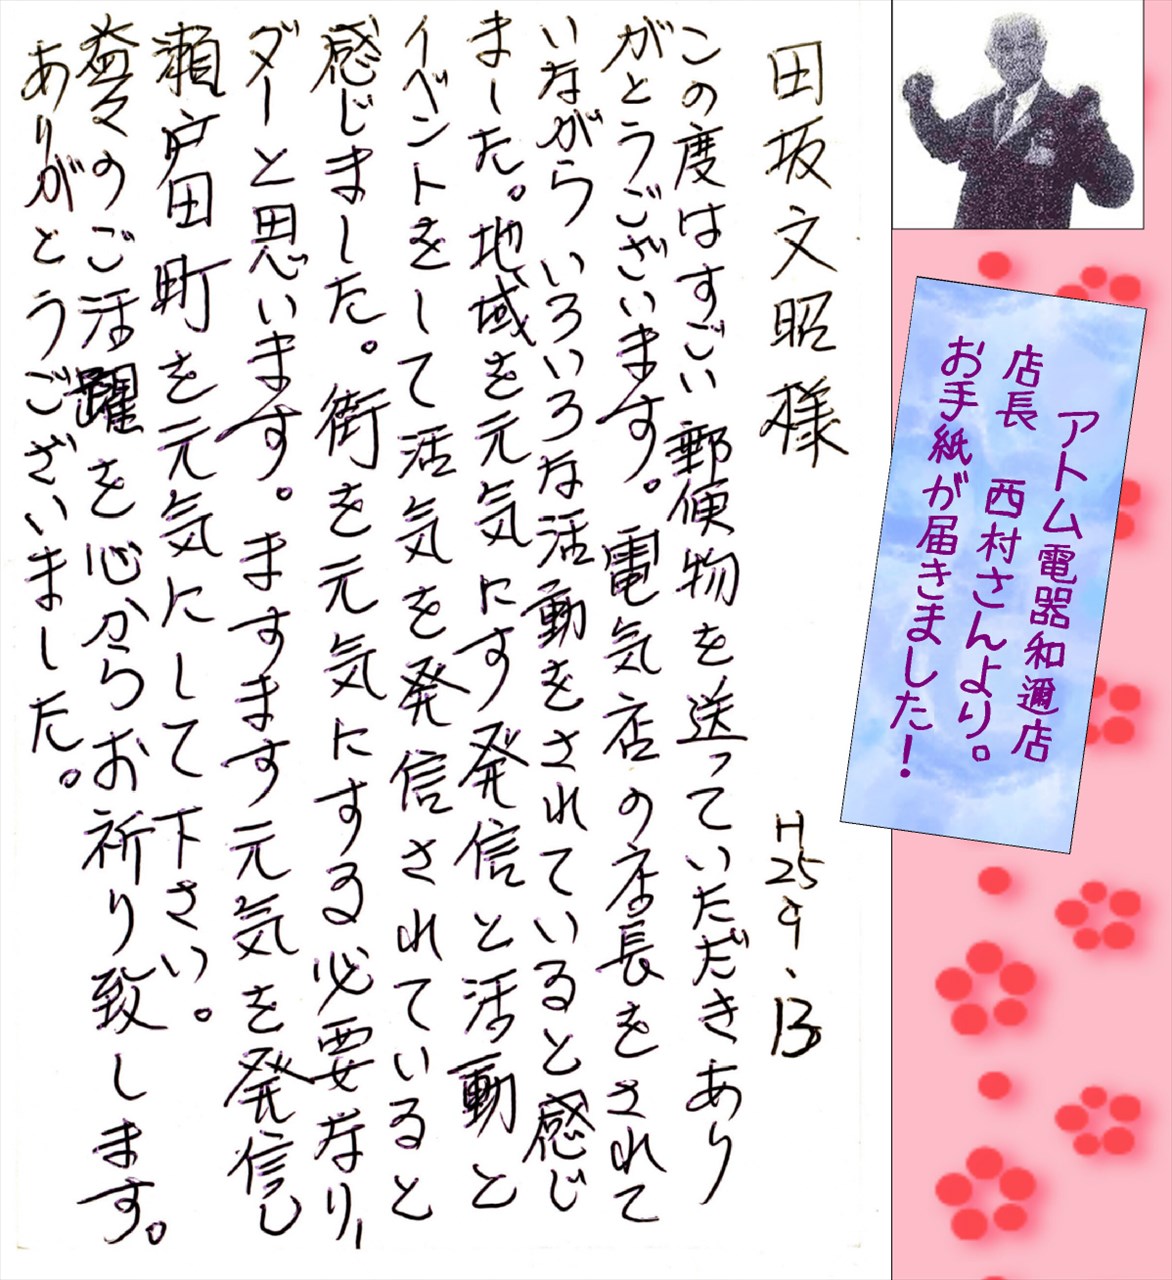 アトム電器和邇店
店長 西村さんより。
お手紙が届きました!
田坂文昭様
H25 9.13
この度はすごい郵便物を送っていただきあり
がとうございます。電気店の店長をされて
いながらいろいろな活動をされていると感じ
ました。地域を元気にす発信と活動と
イベントをして活気を発信されていると
感じました。街を元気にする必要なリ
ダーと思います。ますます元気を発信し
瀬戸田町を元気にして下さい。
益々のご活躍を心からお祈り致します。
ありがとうございました。